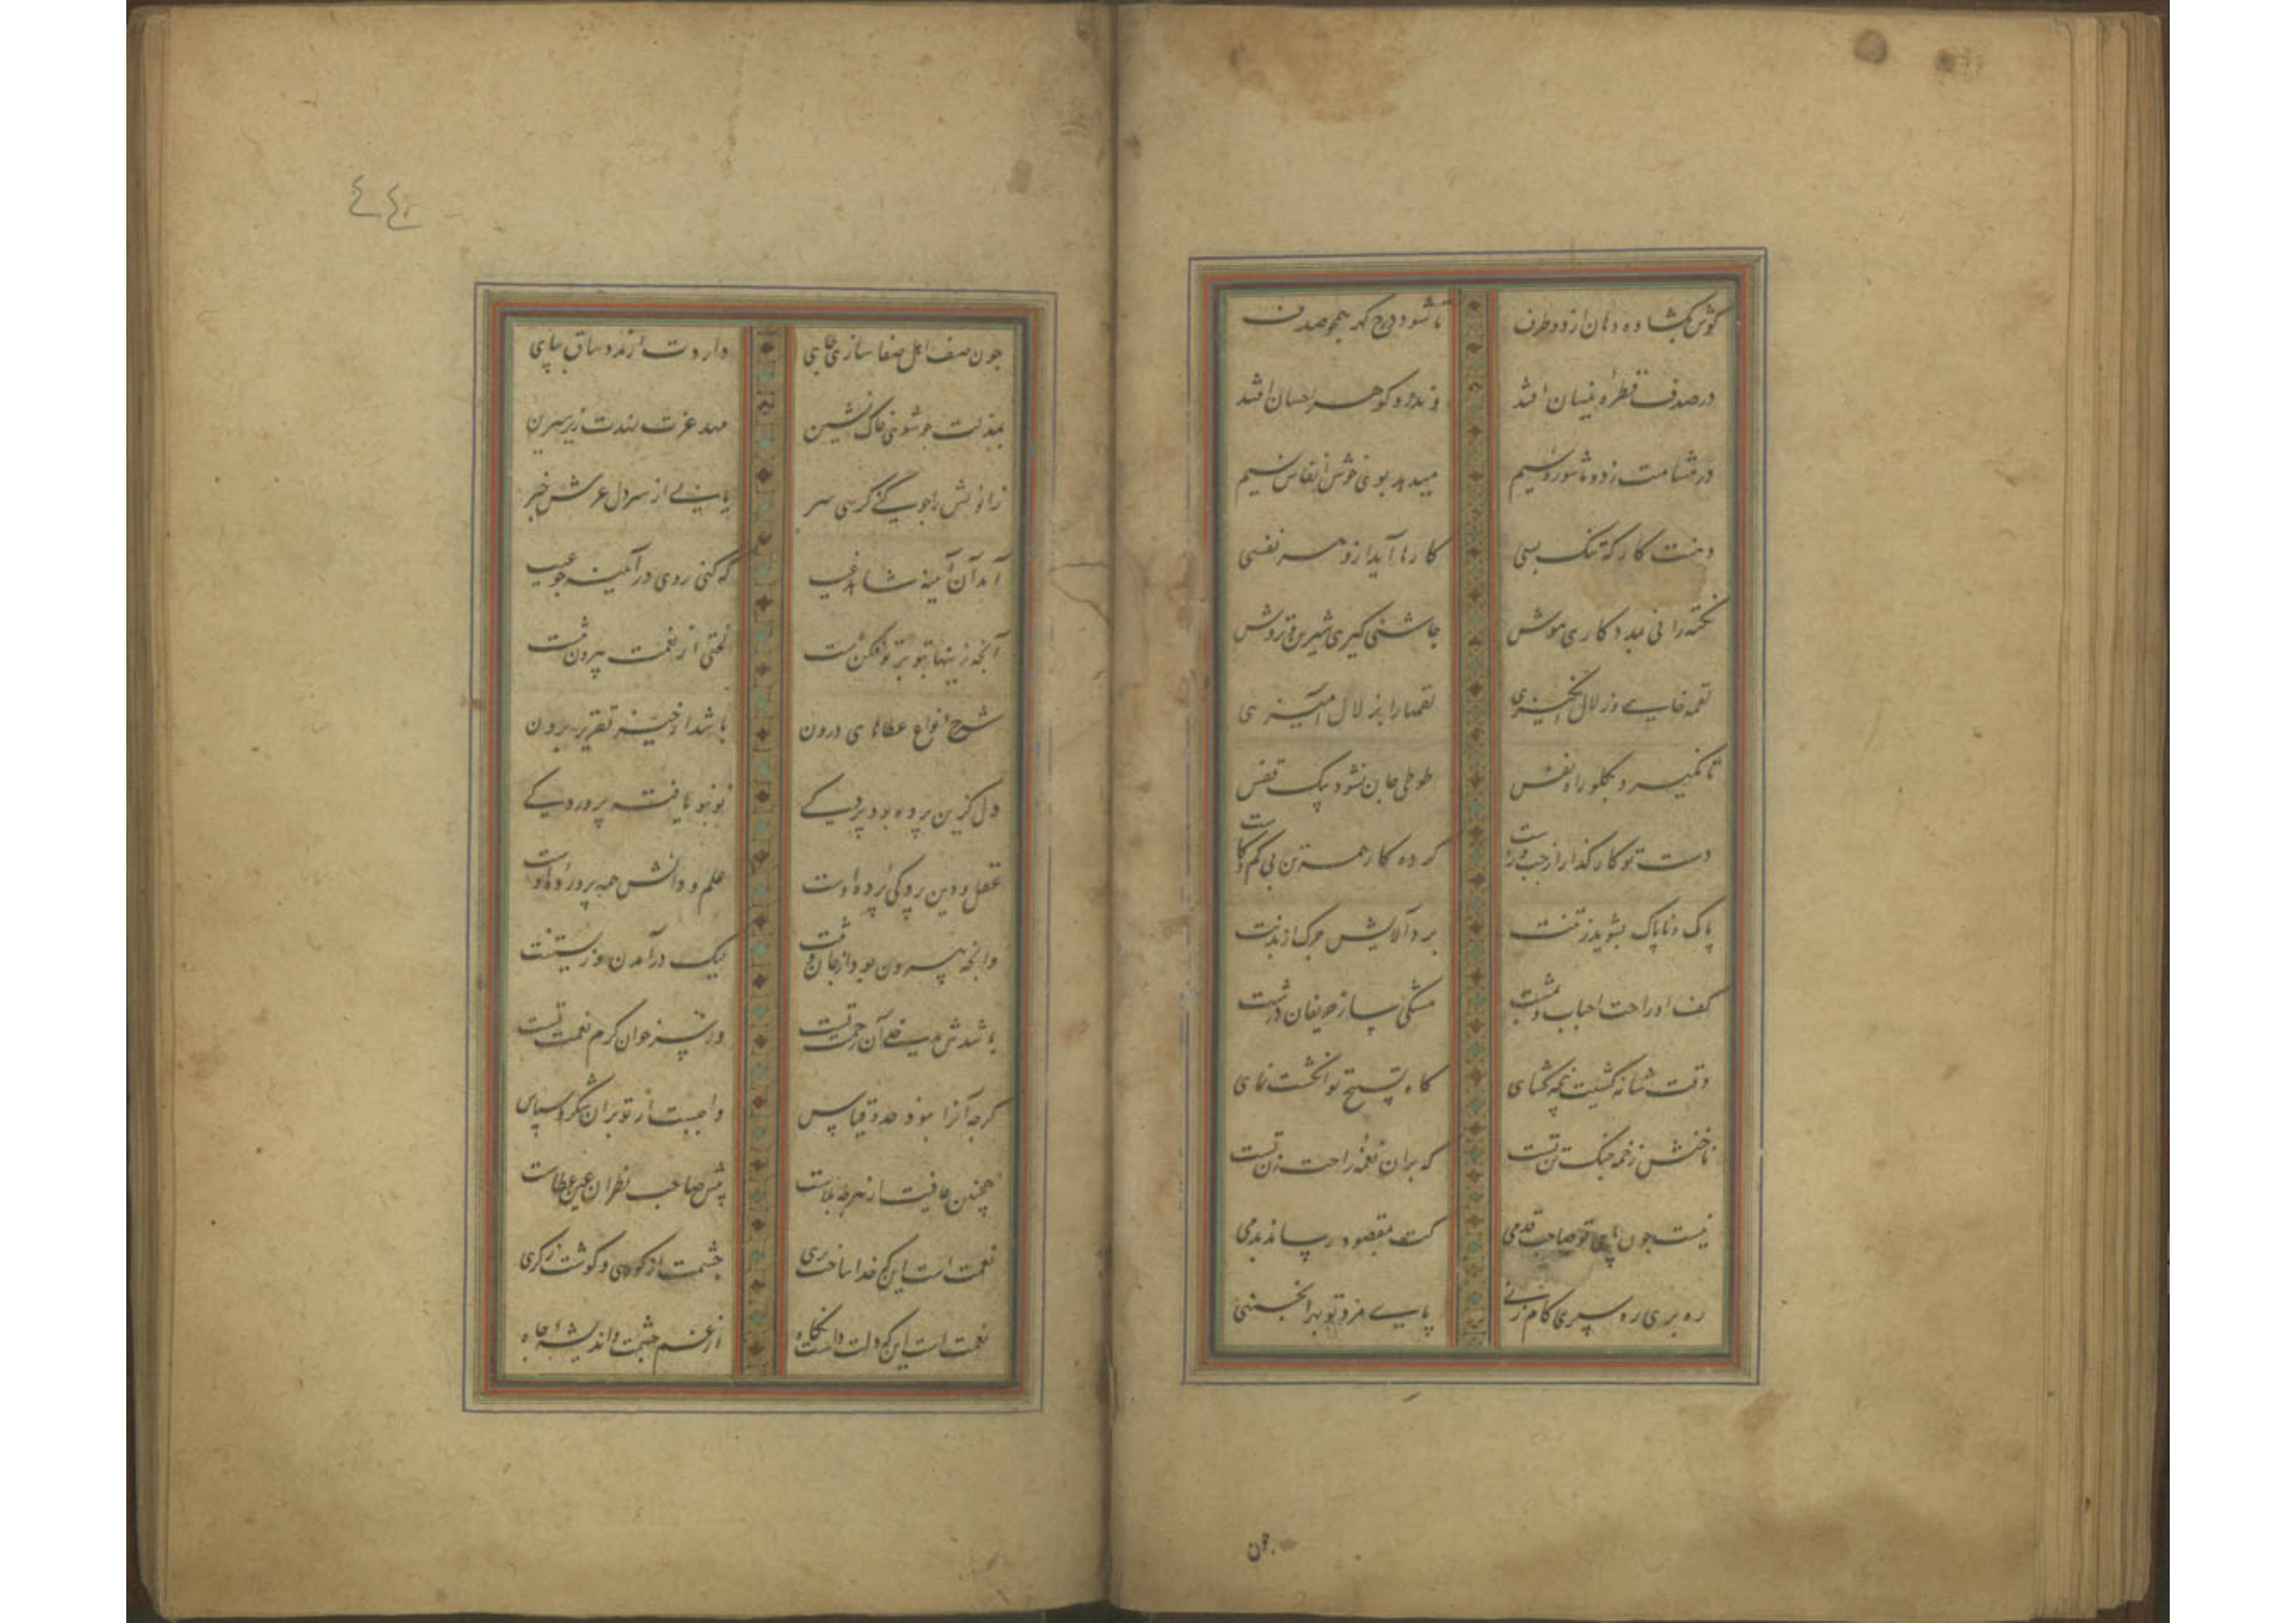 گوش بگشاده دهان از دو طرف تا شود درج گهر همچو صدف
در صدف قطره نیسان افتد وندرو گوهر احسان افتد
در مشامت زده تا شور و شمیم میدهد بوی خوش انفاس نسیم
دهنت کارگه تنگ بسی کارها آید ازو هر نفسی
نکته رانی بمددکاری هوش چاشنی گیری شیرین و ترش
لقمه خایی و زلال انگیزی لقمها را بزلال آمیزی
تا نگیرد بگلو راه نفس طوطی جان نشود پیک قفس
دست تو کارگذار از چپ و راست کرده کار همه تن بی کم و کاست
پاک و ناپاک بشوید ز تنت برد آلایش چرک از بدنت
کف او راحت احباب و بمشت مشکی ساز حریفان درشت
وقت شانه کشیت پنجه گشای گاه تسبیح تو انگشت نمای
ناخنش زخمه چنگ تن تست که بران نغمه راحت زن تست
نیست چون پای تو صاحب قدمی کت بمقصود رساند بدمی
ره بری ره سپری گام زنی پایمزد تو بهر انجمنی
چون
٤٤
چون صف اهل صفا سازی جای داردت از مدد ساق بپای
بمذلت چو شوی خاک نشین مهد عزت نهدت زیر سرین
زانویش را چو کنی کرسی سر یابی از سر دل عرش خبر
آمد آن آینه شاهد غیب که کنی روی در آیینه جیب
آنچه زینها بتو پرتو فکن است لختی از نعمت بیرون تنست
شرح انواع عطاهای درون باشد از حیز تقریر برون
دل کزین پرده بود پردگیی نو بنو یافته پروردگیی
عقل و دین پردگی پرده اوست علم و دانش همه پرورده اوست
وانچه بیرون بود از جان و تنت لیک در آمدن و زیستنت
باشدش مدخلی آن رحمت تست وز پس خوان کرم نعمت تست
گرچه آنرا نبود حد و قیاس واجبست از تو بران شکر و سپاس
همچنین عافیت از هرچه بلاست پیش صاحب نظران عین عطاست
نعمت است این که خدا ساخت بری چشمت از کوری و گوشت ز کری
نعمت است این که دلت داشت نگاه از غم حشمت و اندیشه جاه